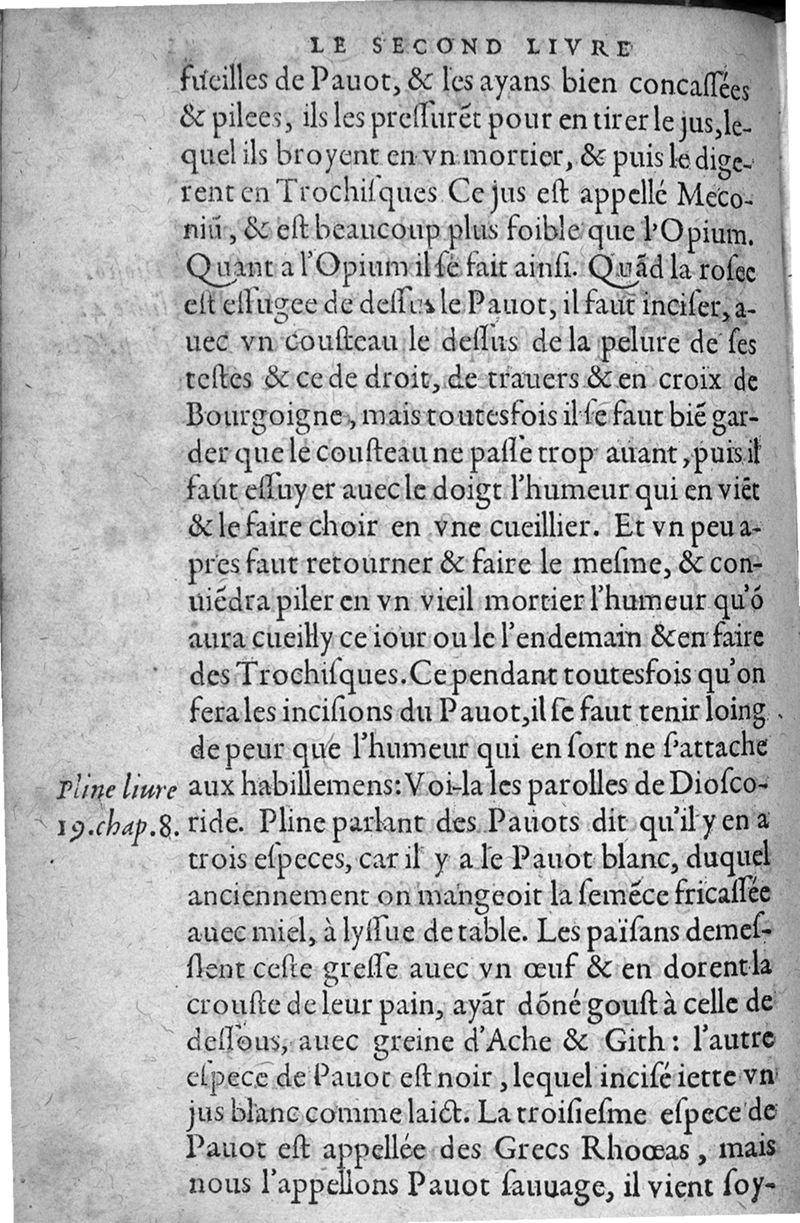 LE SECOND LIVRE
fueilles de Pauot, & les ayans bien concaſſées
& pilees, ils les preſſurẽt pour en tirer le jus, le-
quel ils broyent en vn mortier, & puis le dige-
rent en Trochiſques Ce jus eſt appellé Meco-
niũ, & eſt beaucoup plus foible que l'Opium.
Quant a l'Opium il ſe fait ainſi. Quãd la roſee
eſt eſſugee de deſſus le Pauot, il faut inciſer, a-
uec vn couſteau le deſſus de la pelure de ſes
teſtes & ce de droit, de trauers & en croix de
Bourgoigne, mais toutesfois il ſe faut biẽ gar-
der que le couſteau ne paſſe trop auant, puis il
faut eſſuyer auec le doigt l'humeur qui en viẽt
& le faire choir en vne cueillier. Et vn peu a-
pres faut retourner & faire le meſme, & con-
uiẽdra piler en vn vieil mortier l'humeur qu'õ
aura cueilly ce iour ou le l'endemain & en faire
des Trochiſques. Ce pendant toutesfois qu'on
fera les inciſions du Pauot, il ſe faut tenir loing
de peur que l'humeur qui en ſort ne s'attache
Pline liure aux habillemens: Voi-la les parolles de Dioſco-
19. chap. 8. ride. Pline parlant des Pauots dit qu'il y en a
trois eſpeces, car il y a le Pauot blanc, duquel
anciennement on mangeoit la ſemẽce fricaſſée
auec miel, à lyſſue de table. Les païſans demeſ-
ſlent ceſte greſſe auec vn œuf & en dorent la
crouſte de leur pain, ayãt dõné gouſt à celle de
deſſous, auec greine d'Ache & Gith: l'autre
eſpece de Pauot eſt noir, lequel inciſé iette vn
jus blanc comme laict. La troiſieſme eſpece de
Pauot eſt appellée des Grecs Rhœas, mais
nous l'appellons Pauot ſauuage, il vient ſoy-